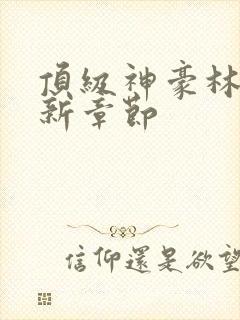 頂級神豪林
新章節
信仰還是欲望